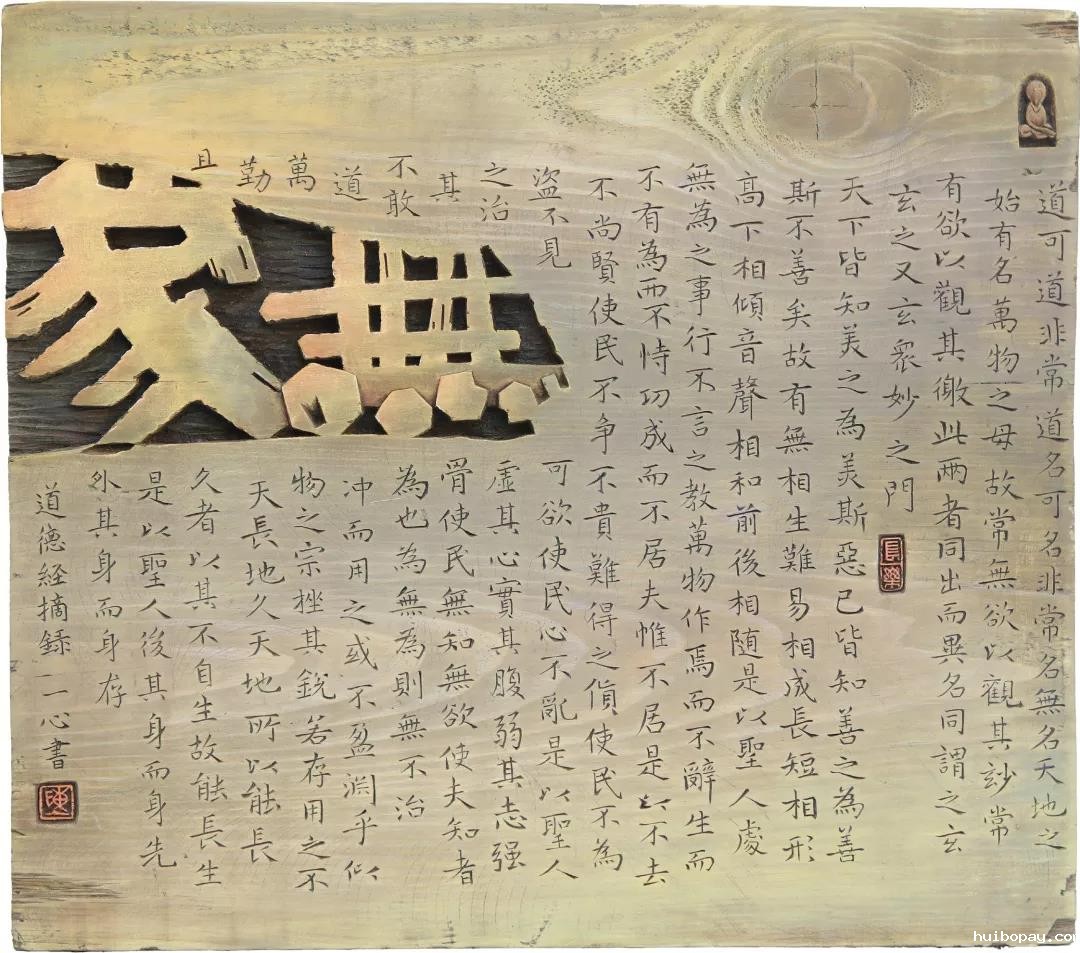 道可道非常道名可名非常名無名天地之
始有名萬物之母故常無欲以觀其玅常
有欲以觀其徼此兩者同出而異名同謂之玄
玄之又玄眾妙之門
長樂
天下皆知美之為美斯惡已皆知善之為善
斯不善矣故有無相生難易相成長短相形
高下相傾音聲相和前後相随是以聖人處
無為之事行不言之教萬物作焉而不辭生而
不有為而不恃功成而不居夫惟不居是以不去
不尚賢使民不争不貴難得之貨使民不為
盜不見可欲使民心不亂是以聖人
之治虛其心實其腹弱其志强
其骨使民無知無欲使夫知者
不敢為也為無為則無不治
道冲而用之或不盈淵乎似
萬物之宗挫其銳若存用之不
勤天長地久天地所以能長
且久者以其不自生故能長生
是以聖人後其身而身先
外其身而身存
道德経摘録 一心書
無
huibopay.com